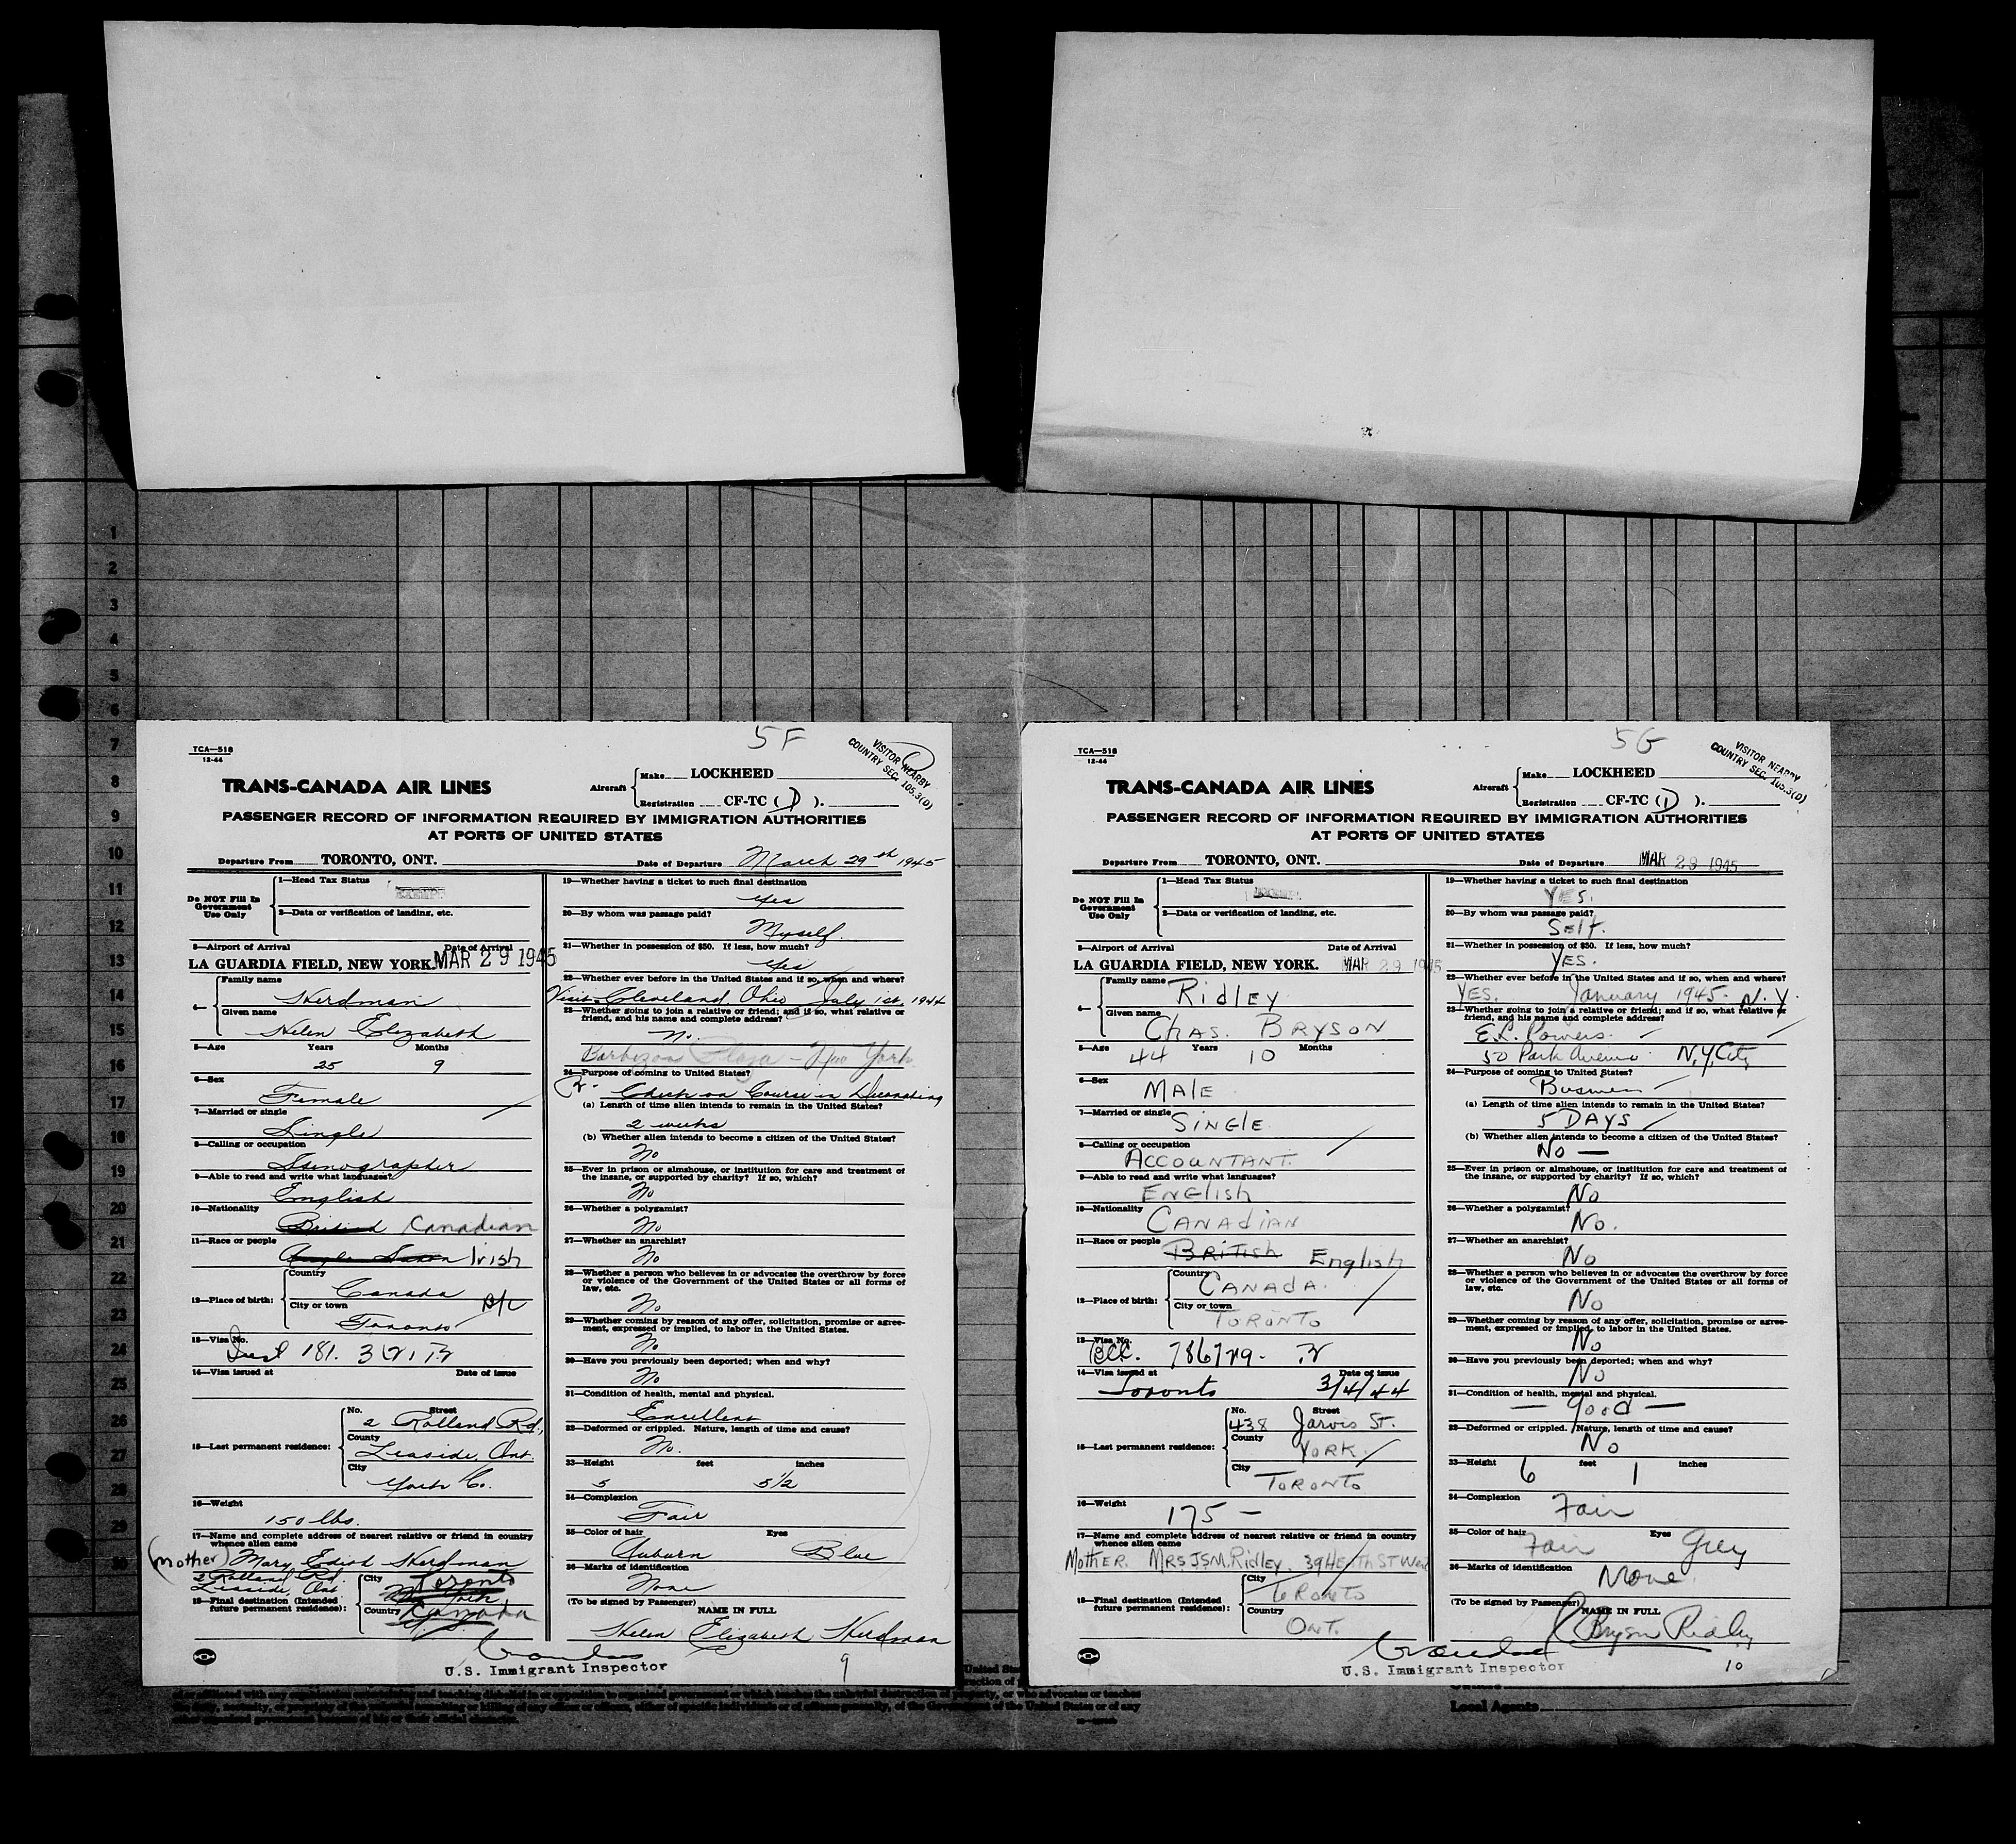 1
2
3
4
5
6
7
8
9
10
11
12
13
14
15
16
17
18
19
20
21
22
23
24
25
26
27
28
29
30
5F
VISITOR NEARBY
COUNTRY SEC. 105.3(D)
TCA—518
12-44
TRANS-CANADA AIR LINES
Aircraft
Make LOCKHEED
Registration CF-TC (D).
PASSENGER RECORD OF INFORMATION REQUIRED BY IMMIGRATION AUTHORITIES
AT PORTS OF UNITED STATES
Departure From TORONTO, ONT. Date of Departure March 29th 1945
Do NOT Fill In
Government
Use Only
1—Head Tax Status
2—Data or verification of landing, etc.
3—Airport of Arrival Date of Arrival
LA GUARDIA FIELD, NEW YORK. MAR 29 1945
4— Family name
Herdman
Given name
Helen Elizabeth
5—Age Years Months
25 9
6—Sex
Female
7—Married or single
Single
8—Calling or occupation
Stenographer
9—Able to read and write what languages?
English
10—Nationality
British Canadian
11—Race or people
Anglo Saxon Irish
12—Place of birth:
Country
Canada
City or town
Toronto
13—Visa No.
181.
14—Visa issued at Date of issue
15—Last permanent residence:
No. Street
2 Rolland Rd.,
County
Leaside, Ont.
City
York Co.
16—Weight
150 lbs.
17—Name and complete address of nearest relative or friend in country
whence alien came
(Mother) Mary Edith Herdman
2 Rolland Rd.
Leaside, Ont
18—Final destination (Intended
future permanent residence):
City Toronto
Country Canada
19—Whether having a ticket to such final destination
Yes
20—By whom was passage paid?
Myself.
21—Whether in possession of $50. If less, how much?
Yes
22—Whether ever before in the United States and if so, when and where?
Visit Cleveland, Ohio July 1st, 1944
23—Whether going to join a relative or friend; and if so, what relative or
friend, and his name and complete address?
No.
Barbizon Plaza - New York
24—Purpose of coming to United States?
Check on Course in Decorating
(a) Length of time alien intends to remain in the United States?
2 weeks
(b) Whether alien intends to become a citizen of the United States?
No
25—Ever in prison or almshouse, or institution for care and treatment of
the insane, or supported by charity? If so, which?
No
26—Whether a polygamist?
No
27—Whether an anarchist?
No
28—Whether a person who believes in or advocates the overthrow by force
or violence of the Government of the United States or all forms of
law, etc.
No
29—Whether coming by reason of any offer, solicitation, promise or agree-
ment, expressed or implied, to labor in the United States.
No
30—Have you previously been deported; when and why?
No
31—Condition of health, mental and physical.
Excellent
32—Deformed or crippled. Nature, length of time and cause?
No.
33—Height feet inches
5 5 1/2
34—Complexion
Fair
35—Color of hair Eyes
Auburn Blue
36—Marks of identification
None
(To be signed by Passenger)
NAME IN FULL
Helen Elizabeth Herdman
U.S. Immigrant Inspector
9
5G
VISITOR NEARBY
COUNTRY SEC. 105.3(D)
TCA—518
12-44
TRANS-CANADA AIR LINES
Aircraft
Make LOCKHEED
Registration CF-TC (D).
PASSENGER RECORD OF INFORMATION REQUIRED BY IMMIGRATION AUTHORITIES
AT PORTS OF UNITED STATES
Departure From TORONTO, ONT. Date of Departure MAR 29 1945
Do NOT Fill In
Government
Use Only
1—Head Tax Status
2—Data or verification of landing, etc.
3—Airport of Arrival Date of Arrival
LA GUARDIA FIELD, NEW YORK. MAR 29 1945
4— Family name
Ridley
Given name
Chas. Bryson
5—Age Years Months
44 10
6—Sex
Male
7—Married or single
Single
8—Calling or occupation
Accountant.
9—Able to read and write what languages?
English
10—Nationality
Canadian
11—Race or people
British English
12—Place of birth:
Country
Canada.
City or town
Toronto
13—Visa No.
BCC. 786729.
14—Visa issued at Date of issue
Toronto 3/4/44
15—Last permanent residence:
No. Street
438 Jarvis St.
County
York
City
Toronto
16—Weight
175 —
17—Name and complete address of nearest relative or friend in country
whence alien came
Mother. Mrs J.S.M. Ridley.
18—Final destination (Intended
future permanent residence):
City
Toronto
Country
Ont.
19—Whether having a ticket to such final destination
Yes.
20—By whom was passage paid?
Self.
21—Whether in possession of $50. If less, how much?
Yes.
22—Whether ever before in the United States and if so, when and where?
Yes. January 1945. N.Y.
23—Whether going to join a relative or friend; and if so, what relative or
friend, and his name and complete address?
E.L. Powers.
50 Park Avenue. N.Y. City
24—Purpose of coming to United States?
Business
(a) Length of time alien intends to remain in the United States?
5 Days
(b) Whether alien intends to become a citizen of the United States?
No —
25—Ever in prison or almshouse, or institution for care and treatment of
the insane, or supported by charity? If so, which?
No
26—Whether a polygamist?
No.
27—Whether an anarchist?
No
28—Whether a person who believes in or advocates the overthrow by force
or violence of the Government of the United States or all forms of
law, etc.
No
29—Whether coming by reason of any offer, solicitation, promise or agree-
ment, expressed or implied, to labor in the United States.
No
30—Have you previously been deported; when and why?
No
31—Condition of health, mental and physical.
— Good —
32—Deformed or crippled. Nature, length of time and cause?
No
33—Height feet inches
6 1
34—Complexion
Fair
35—Color of hair Eyes
Fair Grey
36—Marks of identification
None
(To be signed by Passenger)
NAME IN FULL
C Bryson Ridley
U.S. Immigrant Inspector
10
Local Agents